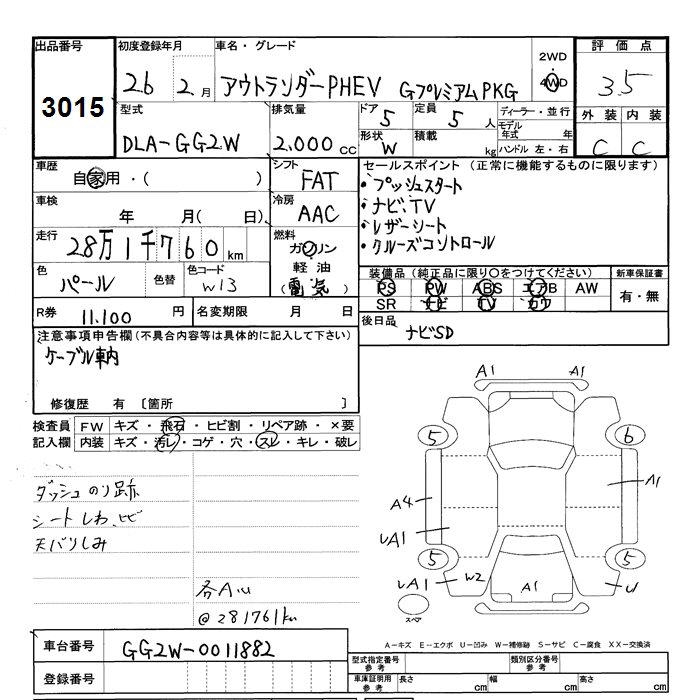 出品番号 初度登録年月 車名・グレード 2WD 評価点
3015 26 2月 アウトランダーPHEV GプレミアムPKG 4WD 3.5
型式 排気量 ドア 5 定員 5人 ディーラー・並行 外装 内装
DLA-GG2W 2.000cc 形状 W 積載 kg モデル年式 年 ハンドル 左・右 C C
車歴 自家用・( ) シフト FAT セールスポイント (正常に機能するものに限ります)
・プッシュスタート
車検 年 月( 日) 冷房 AAC ・ナビ、TV
・レザーシート
走行 28万1千760km 燃料 ガソリン ・クルーズコントロール
色 パール 色替 色コード W13 軽油 (電気) 装備品 (純正品に限り○をつけてください) 新車保証書
PS PW ABS エアB AW 有・無
SR ナビ TV カワ
R券 11.100円 名変期限 月 日 後日品 ナビSD
注意事項申告欄(不具合内容等は具体的に記入して下さい)
ケーブル車内
修復歴 有 〔箇所 〕
検査員 FW キズ・飛石・ヒビ割・リペア跡・×要
記入欄 内装 キズ・汚レ・コゲ・穴・スレ・キレ・破レ
A1 A1
5 6
ダッシュのリ跡
A4 A1
シートしわ、ヒビ
天バリしみ
UA1
5 5
各A心
UA1 W2 A1 U
@281761km
スペア
車台番号 GG2W-0011882
A-キズ E-エクボ U-凹み W-補修跡 S-サビ C-腐食 XX-交換済
登録番号
型式指定番号 参考 類別区分番号 参考
車庫証明用 参考 長さ cm 幅 cm 高さ cm